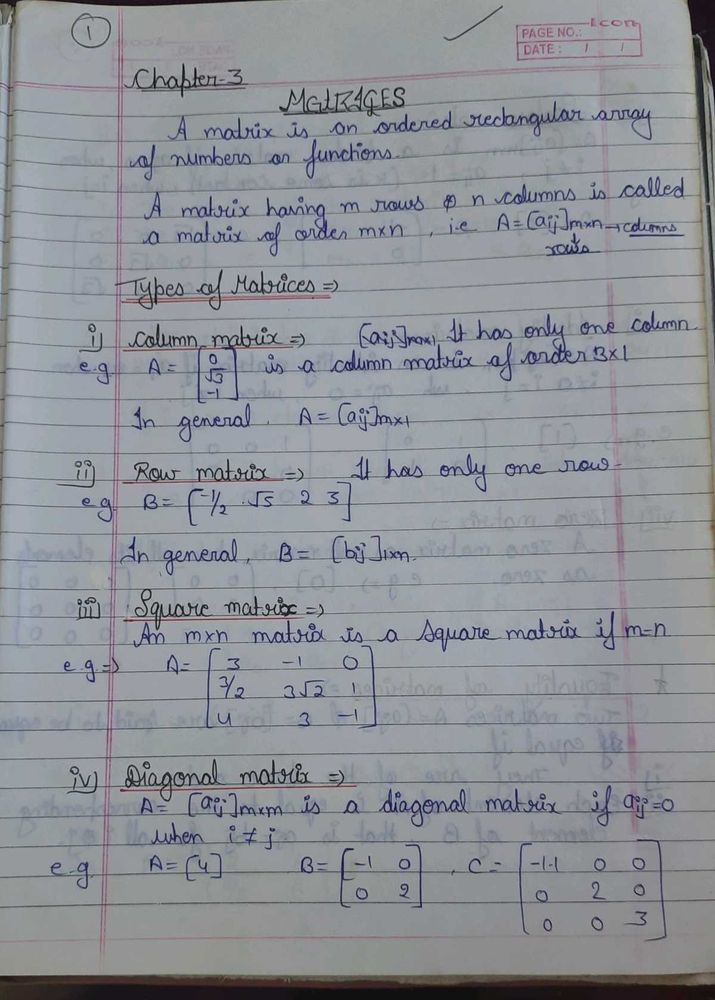 1
Econ
PAGE NO.:
DATE: / /
Chapter-3
MATRICES
A matrix is an ordered rectangular array
of numbers or functions.
A matrix having m rows & n columns is called
a matrix of order m×n, i.e A=[aij]m×n → columns
rows
Types of Matrices ⇒
i) Column matrix ⇒ [aij]m×1 It has only one column.
e.g A = [0 is a column matrix of order 3×1
√3
-1]
In general, A = [aij]m×1
ii) Row matrix ⇒ It has only one row.
e.g B = [-1/2 √5 2 3]
In general, B = [bij]1×n.
iii) Square matrix ⇒
An m×n matrix is a Square matrix if m=n
e.g ⇒ A = [3 -1 0
3/2 3√2 1
4 3 -1]
iv) Diagonal matrix ⇒
A = [aij]m×m is a diagonal matrix if aij=0
when i ≠ j
e.g A = [4] B = [-1 0 , C = [-1.1 0 0
0 2] 0 2 0
0 0 3]